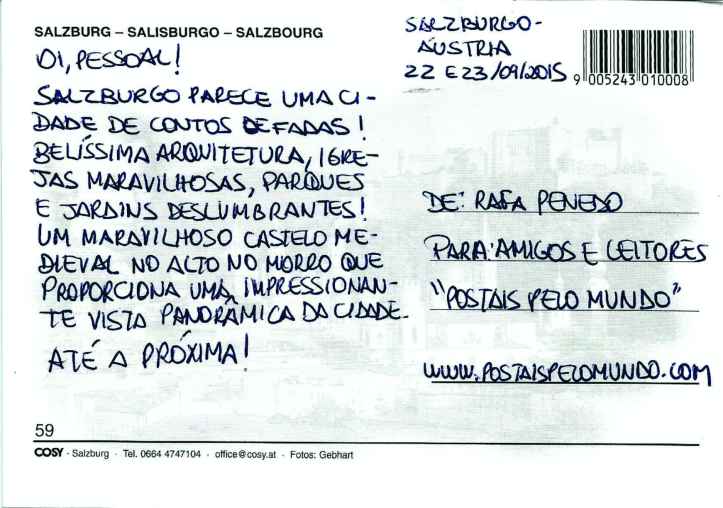 SALZBURG – SALISBURGO – SALZBOURG
OI, PESSOAL!
SALZBURGO PARECE UMA CI-
DADE DE CONTOS DE FADAS!
BELÍSSIMA ARQUITETURA, IGRE-
JAS MARAVILHOSAS, PARQUES
E JARDINS DESLUMBRANTES!
UM MARAVILHOSO CASTELO ME-
DIEVAL NO ALTO NO MORRO QUE
PROPORCIONA UMA IMPRESSIONAN-
TE VISTA PANORÂMICA DA CIDADE.
ATÉ A PRÓXIMA!
SALZBURGO-
ÁUSTRIA
22 E 23/09/2015
9 005243 010008
DE: RAFA PENEDO
PARA: AMIGOS E LEITORES
"POSTAIS PELO MUNDO"
WWW.POSTAISPELOMUNDO.COM
59
COSY · Salzburg · Tel. 0664 4747104 · office@cosy.at · Fotos: Gebhart